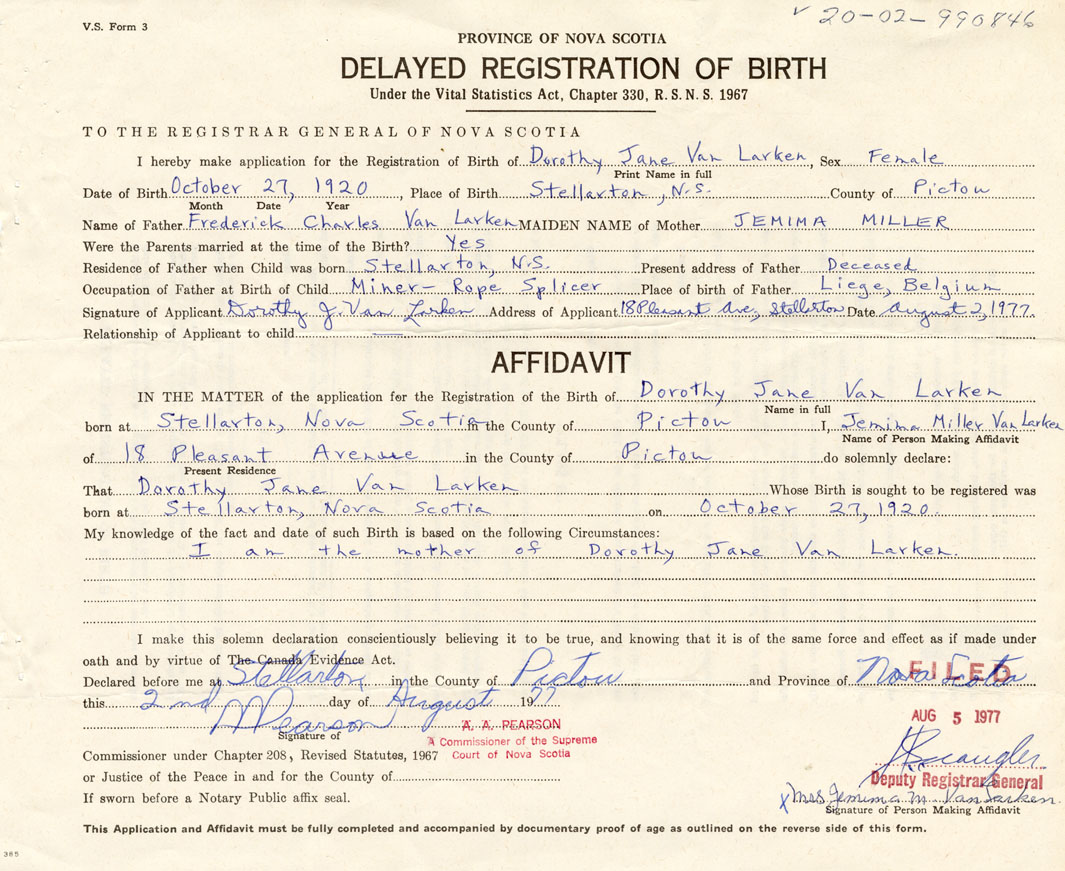 V.S. Form 3
20-02-990846
PROVINCE OF NOVA SCOTIA
DELAYED REGISTRATION OF BIRTH
Under the Vital Statistics Act, Chapter 330, R. S. N. S. 1967
TO THE REGISTRAR GENERAL OF NOVA SCOTIA
I hereby make application for the Registration of Birth of Dorothy Jane Van Larken, Sex Female
Print Name in full
Date of Birth October 27, 1920, Place of Birth Stellarton, N.S. County of Pictou
Month Date Year
Name of Father Frederick Charles Van Larken MAIDEN NAME of Mother JEMIMA MILLER
Were the Parents married at the time of the Birth? Yes
Residence of Father when Child was born Stellarton, N.S. Present address of Father Deceased
Occupation of Father at Birth of Child Miner- Rope Splicer Place of birth of Father Liege, Belgium
Signature of Applicant Dorothy J. Van Larken Address of Applicant 18 Pleasant Ave, Stellarton Date August 2, 1977.
Relationship of Applicant to child
AFFIDAVIT
IN THE MATTER of the application for the Registration of the Birth of Dorothy Jane Van Larken
Name in full
born at Stellarton, Nova Scotia in the County of Pictou I, Jemima Miller Van Larken
Name of Person Making Affidavit
of 18 Pleasant Avenue in the County of Pictou do solemnly declare:
Present Residence
That Dorothy Jane Van Larken Whose Birth is sought to be registered was
born at Stellarton, Nova Scotia on October 27, 1920.
My knowledge of the fact and date of such Birth is based on the following Circumstances:
I am the mother of Dorothy Jane Van Larken.
I make this solemn declaration conscientiously believing it to be true, and knowing that it is of the same force and effect as if made under
oath and by virtue of The Canada Evidence Act.
Declared before me at Stellarton, in the County of Pictou and Province of Nova Scotia
FILED
this 2nd day of August 1977
AUG 5 1977
Pearson
A. A. PEARSON
Signature of
A Commissioner of the Supreme
Commissioner under Chapter 208, Revised Statutes, 1967
Court of Nova Scotia
or Justice of the Peace in and for the County of
Deputy Registrar General
If sworn before a Notary Public affix seal.
x Mrs Jemima M. Van Larken.
Signature of Person Making Affidavit
This Application and Affidavit must be fully completed and accompanied by documentary proof of age as outlined on the reverse side of this form.
385